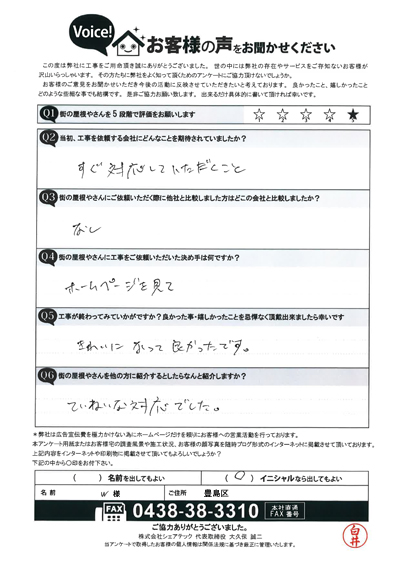 Voice!
お客様の声をお聞かせください
この度は弊社に工事をご用命頂き誠にありがとうございました。世の中には弊社の存在やサービスをご存知ないお客様が
沢山いらっしゃいます。その方たちに弊社をよく知って頂くためのアンケートにご協力頂けないでしょうか。
お客様のご意見をお聞かせいただき今後の活動に反映させていただきたいと考えております。良かったこと、嬉しかったことなど
どのような些細な事でも結構です。是非ご協力お願い致します。出来るだけ具体的に書いて頂ければ幸いです。
Q1 街の屋根やさんを5段階で評価をお願いします ☆ ☆ ☆ ☆ ★
Q2 当初、工事を依頼する会社にどんなことを期待されていましたか?
すぐ対応していただくこと
Q3 街の屋根やさんにご依頼いただく際に他社と比較しました方はどこの会社と比較しましたか?
なし
Q4 街の屋根やさんに工事をご依頼いただいた決め手は何ですか?
ホームページを見て
Q5 工事が終わってみていかがですか?良かった事・嬉しかったことを忌憚なく頂戴出来ましたら幸いです
きれいになって良かったです。
Q6 街の屋根やさんを他の方に紹介するとしたらなんと紹介しますか?
ていねいな対応でした。
*弊社は広告宣伝費を極力かけない為にホームページだけを頼りにお客様への営業活動を行っております。
本アンケート用紙またはお客様宅の調査風景や施工状況、お客様の顔写真を随時ブログ形式のインターネットに掲載させて頂いております。
上記内容をインターネットや印刷物に掲載させて頂いてもよろしいでしょうか?
下記の中から〇印をお付下さい。
( )名前を出してもよい (〇)イニシャルなら出してもよい
名前 W 様 ご住所 豊島区
FAX 0438-38-3310 本社直通 FAX番号
ご協力ありがとうございました。
株式会社シェアテック 代表取締役 大久保 誠二
当アンケートで取得したお客様の個人情報は関係法規に基づき厳正に管理いたします。
白井